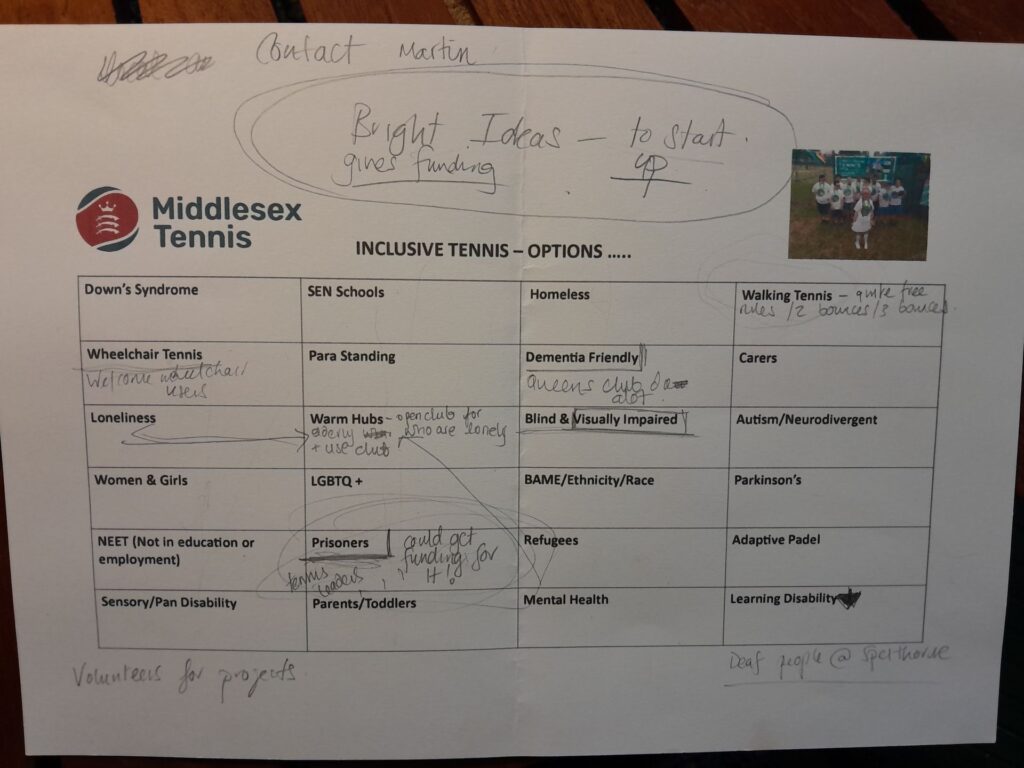 Contact Martin
Bright Ideas — to start up
gives funding
Middlesex
Tennis
INCLUSIVE TENNIS – OPTIONS …..
Down's Syndrome
SEN Schools
Homeless
Walking Tennis – quite free
rules / 2 bounces / 3 bounces.
Wheelchair Tennis
Welcome wheelchair
users
Para Standing
Dementia Friendly
Queens club do
alot
Carers
Loneliness
Warm Hubs – open club for
elderly who are lonely
+ use club
Blind & Visually Impaired
Autism/Neurodivergent
Women & Girls
LGBTQ +
BAME/Ethnicity/Race
Parkinson's
NEET (Not in education or
employment)
Prisoners
could get
funding for
it!
tennis
leaders
Refugees
Adaptive Padel
Sensory/Pan Disability
Parents/Toddlers
Mental Health
Learning Disability
Volunteers for projects
Deaf people @ Spelthorne